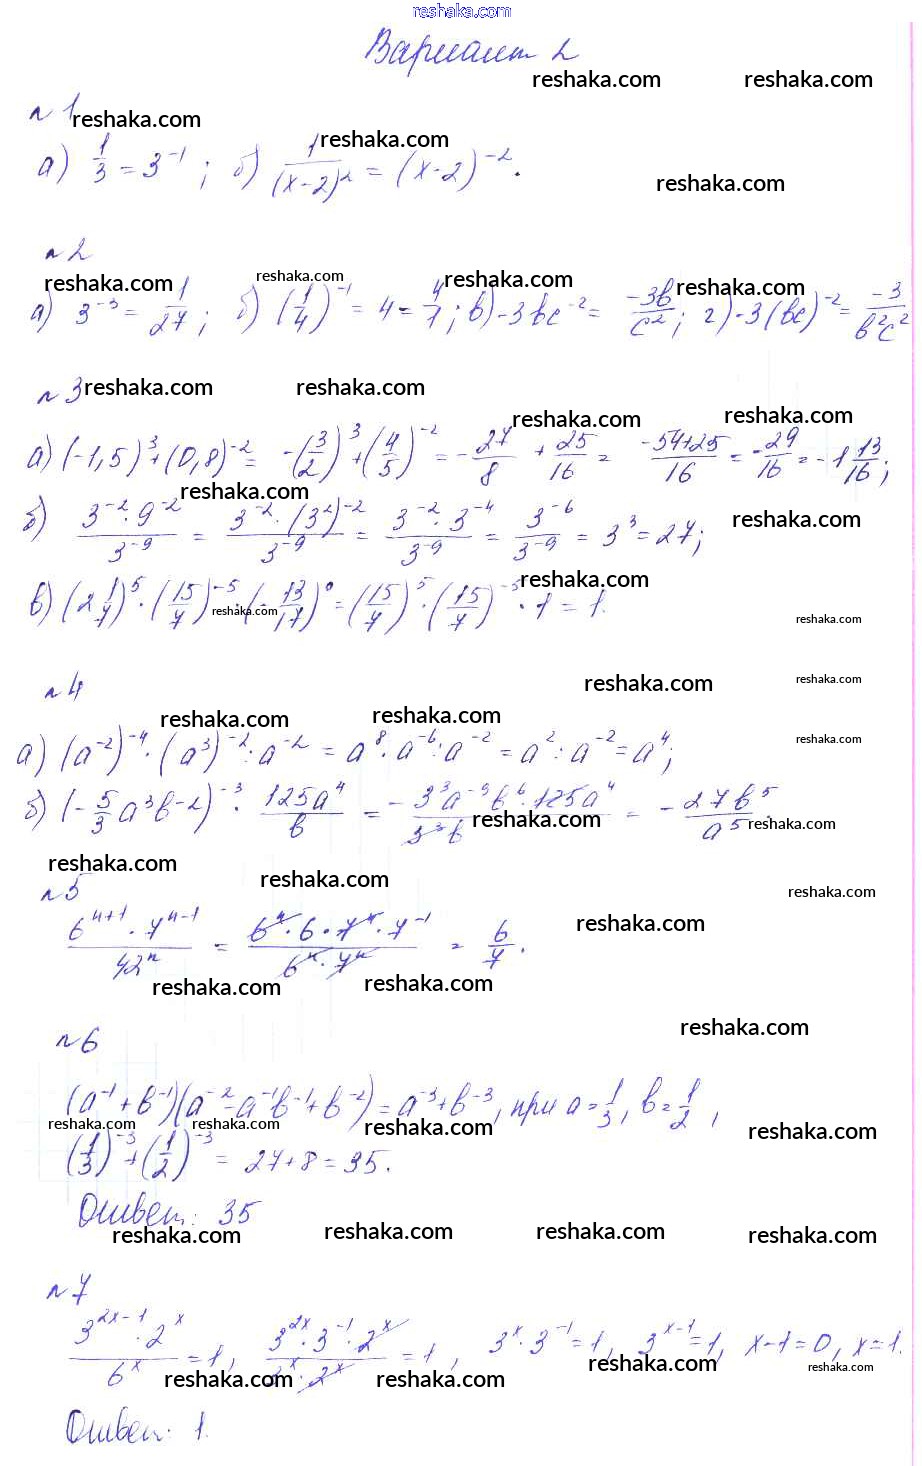 reshaka.com
Вариант 2
reshaka.com reshaka.com
№1
reshaka.com
reshaka.com
а) 1/3 = 3^-1 ; б) 1/(x-2)^2 = (x-2)^-2.
reshaka.com
№2
reshaka.com reshaka.com reshaka.com reshaka.com
а) 3^-3 = 1/27 ; б) (1/4)^-1 = 4 = 4/1 ; в) -3bc^-2 = -3b/c^2 ; г) -3(bc)^-2 = -3/b^2c^2
№3
reshaka.com reshaka.com
reshaka.com reshaka.com
а) (-1,5)^3 + (0,8)^-2 = -(3/2)^3 + (4/5)^-2 = -27/8 + 25/16 = -54+25/16 = -29/16 = -1 13/16 ;
reshaka.com
б) 3^-2 · 9^-2/3^-9 = 3^-2 · (3^2)^-2/3^-9 = 3^-2 · 3^-4/3^-9 = 3^-6/3^-9 = 3^3 = 27;
reshaka.com
reshaka.com
в) (2 1/7)^5 · (15/7)^-5 · (-13/17)^0 = (15/7)^5 · (15/7)^-5 · 1 = 1.
reshaka.com
reshaka.com
№4
reshaka.com reshaka.com
reshaka.com reshaka.com
reshaka.com
а) (a^-2)^-4 · (a^3)^-2 : a^-2 = a^8 · a^-6 : a^-2 = a^2 : a^-2 = a^4 ;
б) (-5/3 a^3 b^-2)^-3 · 125a^4/b = -3^3 a^-9 b^6 · 125a^4/5^3 b = -27b^5/a^5 .
reshaka.com reshaka.com
reshaka.com
№5
reshaka.com
reshaka.com
reshaka.com
6^n+1 · 7^n-1/42^n = 6^n · 6 · 7^n · 7^-1/6^n · 7^n = 6/7 .
reshaka.com reshaka.com
reshaka.com
№6
(a^-1 + b^-1)(a^-2 - a^-1b^-1 + b^-2) = a^-3 + b^-3, при a = 1/3, b = 1/2 ,
reshaka.com reshaka.com reshaka.com reshaka.com
(1/3)^-3 + (1/2)^-3 = 27+8 = 35.
Ответ: 35
reshaka.com reshaka.com reshaka.com reshaka.com
№7
3^2x-1 · 2^x/6^x = 1, 3^2x · 3^-1 · 2^x/3^x · 2^x = 1 , 3^x · 3^-1 = 1, 3^x-1 = 1, x-1 = 0, x = 1.
reshaka.com reshaka.com reshaka.com reshaka.com
Ответ: 1.